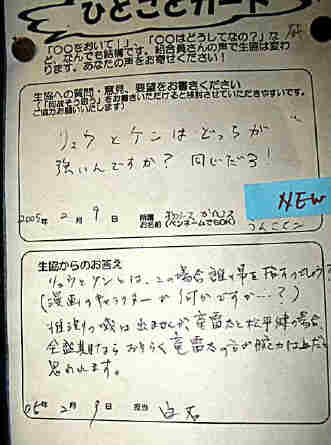 ひとことカード
「〇〇をおいて!」、「〇〇はどうしてなの?」な
ど、なんでも結構です。組合員さんの声で生協は変わ
ります。あなたの声をお寄せください!
生協への質問・意見、要望をお書きください
ご協力お願いいたします)
リュウとケンはどっちが
強いんですか? 同いだろ!
NEW
2005年 2月 9日 所属
お名前(ペンネームでもOK)
生協からのお答え
リュウとケンとは、この場合誰を指すのでしょう?
(漫画のキャラクターか何かですか…?)
推測の域は出ませんが、竜雷太と松平健の場合、
全盛期ならおそらく竜雷太の方が腕力は上だと
思われます。
05年 2月 9日 担当 白石